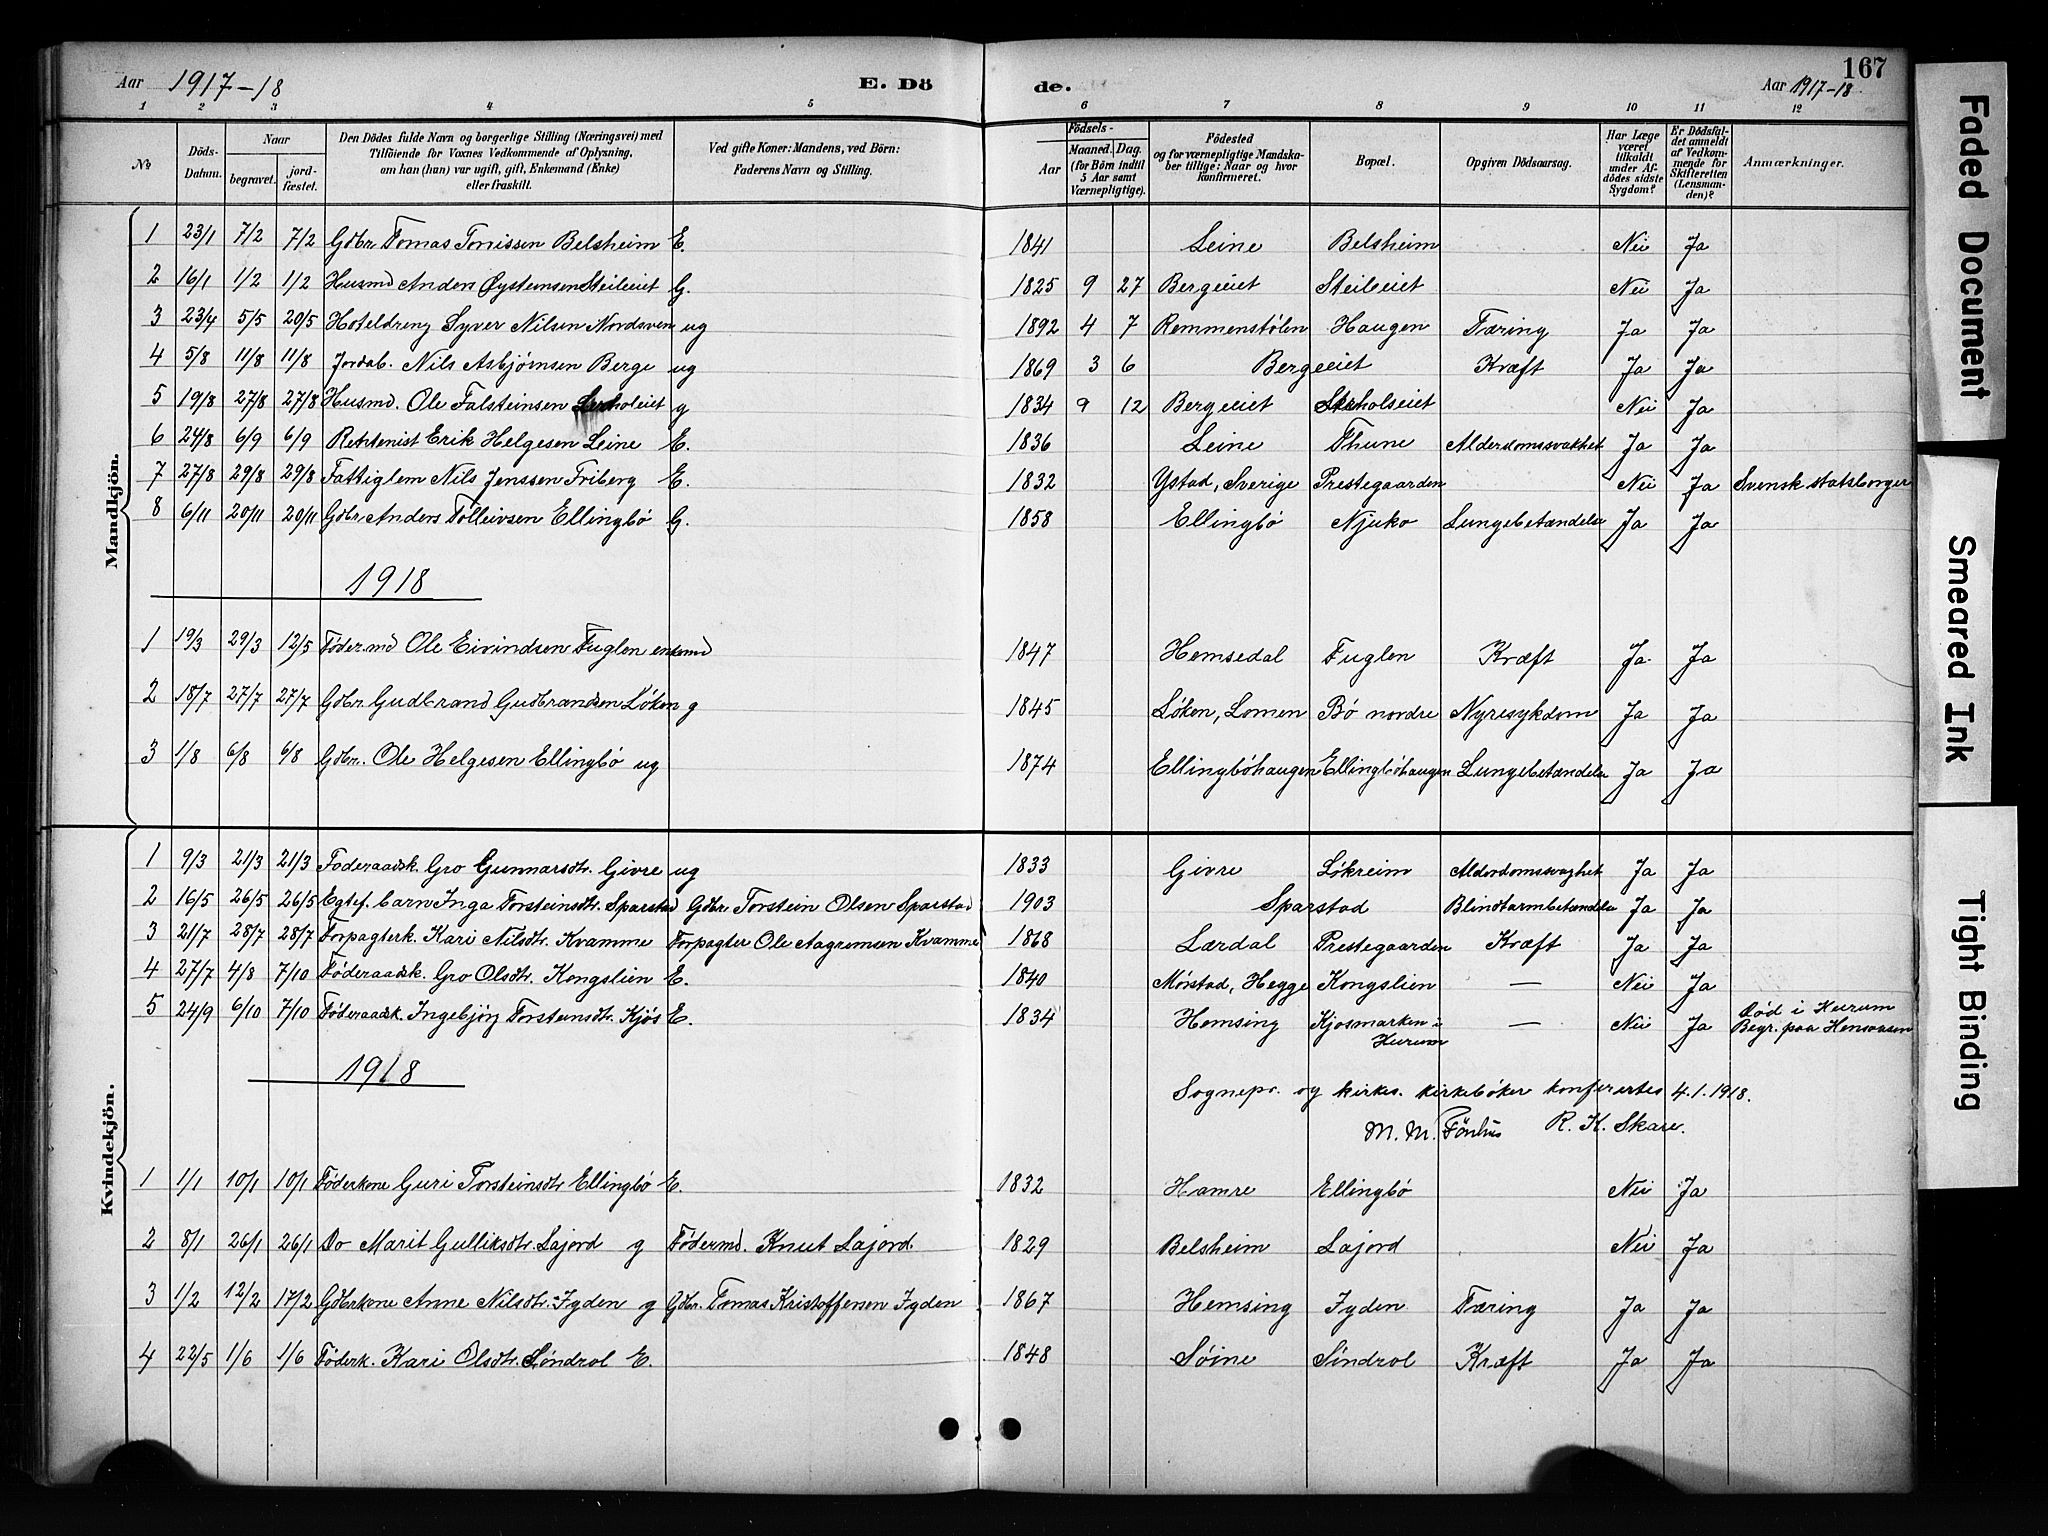 Aar 1917-18 E. Döde. Aar 1917-18 167
1 2 3 4 5 6 7 8 9 10 11 12
No
Döds-Datum.
Naar begravet. jordfæstet.
Den Dödes fulde Navn og borgerlige Stilling (Næringsvei) med
Tilföiende for Voxnes Vedkommende af Oplysning,
om han (hun) var ugift, gift, Enkemand (Enke)
eller fraskilt.
Ved gifte Koner: Mandens, ved Börn:
Faderens Navn og Stilling.
Födsels-
Aar Maaned. Dag.
(for Börn indtil 5 Aar samt Værnepligtige).
Födested
og for værnepligtige Mandskaber tillige: Naar og hvor konfirmeret.
Bopæl.
Opgiven Dödsaarsag.
Har Læge været tilkaldt under Afdödes sidste Sygdom?
Er Dödsfaldet anmeldt af Vedkommende for Skifteretten (Lensmanden)?
Anmærkninger.
Mandkjön.
1 23/1 7/2 7/2 Gdbr. Tomas Tomissen Belsheim E. 1841 Leine Belsheim Nei Ja
2 16/1 1/2 1/2 Husmd Anders Øysteinsen Steileiet G. 1825 9 27 Bergeiet Steileiet Nei Ja
3 23/4 5/5 20/5 Hoteldreng Syver Nilsen Nordsven ug 1892 4 7 Remmenstølen Haugen Tæring Ja Ja
4 5/8 11/8 11/8 Jordab. Nils Asbjørnsen Berge ug 1869 3 6 Bergeeiet Kræft Ja Ja
5 19/8 27/8 27/8 Husmd. Ole Falsteinsen g 1834 9 12 Bergeeiet Nei Ja
6 24/8 6/9 6/9 Rentenist Erik Helgesen Leine E. 1836 Leine Thune Alderdomssvakhet Ja Ja
7 27/8 29/8 29/8 Fattiglem Nils Jenssen Friberg E. 1832 Ystad, Sverige Prestegaarden Nei Ja Svensk statsborger
8 6/11 20/11 20/11 Gdbr. Anders Tolleivsen Ellingbø G. 1858 Ellingbø Njuko Lungebetændelse Ja Ja
1918
1 19/3 29/3 12/5 Föder.md Ole Eivindsen Fuglen enkemd 1847 Hemsedal Fuglen Kræft Ja Ja
2 18/7 27/7 27/7 Gdbr. Gudbrand Gudbrandsen Løken g 1845 Løken, Lomen Bø nordre Nyresykdom Ja Ja
3 1/8 6/8 6/8 Gdbr. Ole Helgesen Ellingbø ug 1874 Ellingbøhaugen Ellingbøhaugen Lungebetændelse Ja Ja
Kvindekjön.
1 9/3 21/3 21/3 Føderaadsk. Gro Gunnarsdtr. Givre ug 1833 Givre Løkreim Alderdomssvaghet Ja Ja
2 16/5 26/5 26/5 Egtef. barn Inga Torsteinsdtr. Sparstad Gdbr. Torstein Olsen Sparstad 1903 Sparstad Blindtarmbetændelse Ja Ja
3 21/7 28/7 28/7 Forpagterk. Kari Nilsdtr. Kvamme Forpagter Ole Aagremsen Kvamme 1868 Lærdal Prestegaarden Kræft Ja Ja
4 27/7 4/8 7/10 Føderaadsk. Gro Olsdtr. Kongslien E. 1840 Mørstad, Hegge Kongslien — Nei Ja
5 24/9 6/10 7/10 Føderaadsk. Ingebjørg Torsteinsdtr. Kjøs E. 1834 Hemsing Kjosmarken i Hurum — Nei Ja Død i Hurum
Begr. paa Hensaasen
1918
Sognepr. og kirkes. kirkebøker konferertes 4.1.1918.
M. M. Fönhus R. K. Skare.
1 1/1 10/1 10/1 Føderkone Guri Torsteinsdtr Ellingbø E. 1832 Hamre Ellingbø Nei Ja
2 8/1 26/1 26/1 Do Marit Gulliksdtr. Lajord g Födermd. Knut Lajord. 1829 Belsheim Lajord Nei Ja
3 1/2 12/2 17/2 Gdbrkone Anne Nilsdtr. Jyden g Gdbr. Tomas Kristoffersen Jyden 1867 Hemsing Jyden Tæring Ja Ja
4 22/5 1/6 1/6 Föderk. Kari Olsdtr. Søndrol E. 1848 Søine Søndrol Kræft Ja Ja
Faded Document
Smeared Ink
Tight Binding